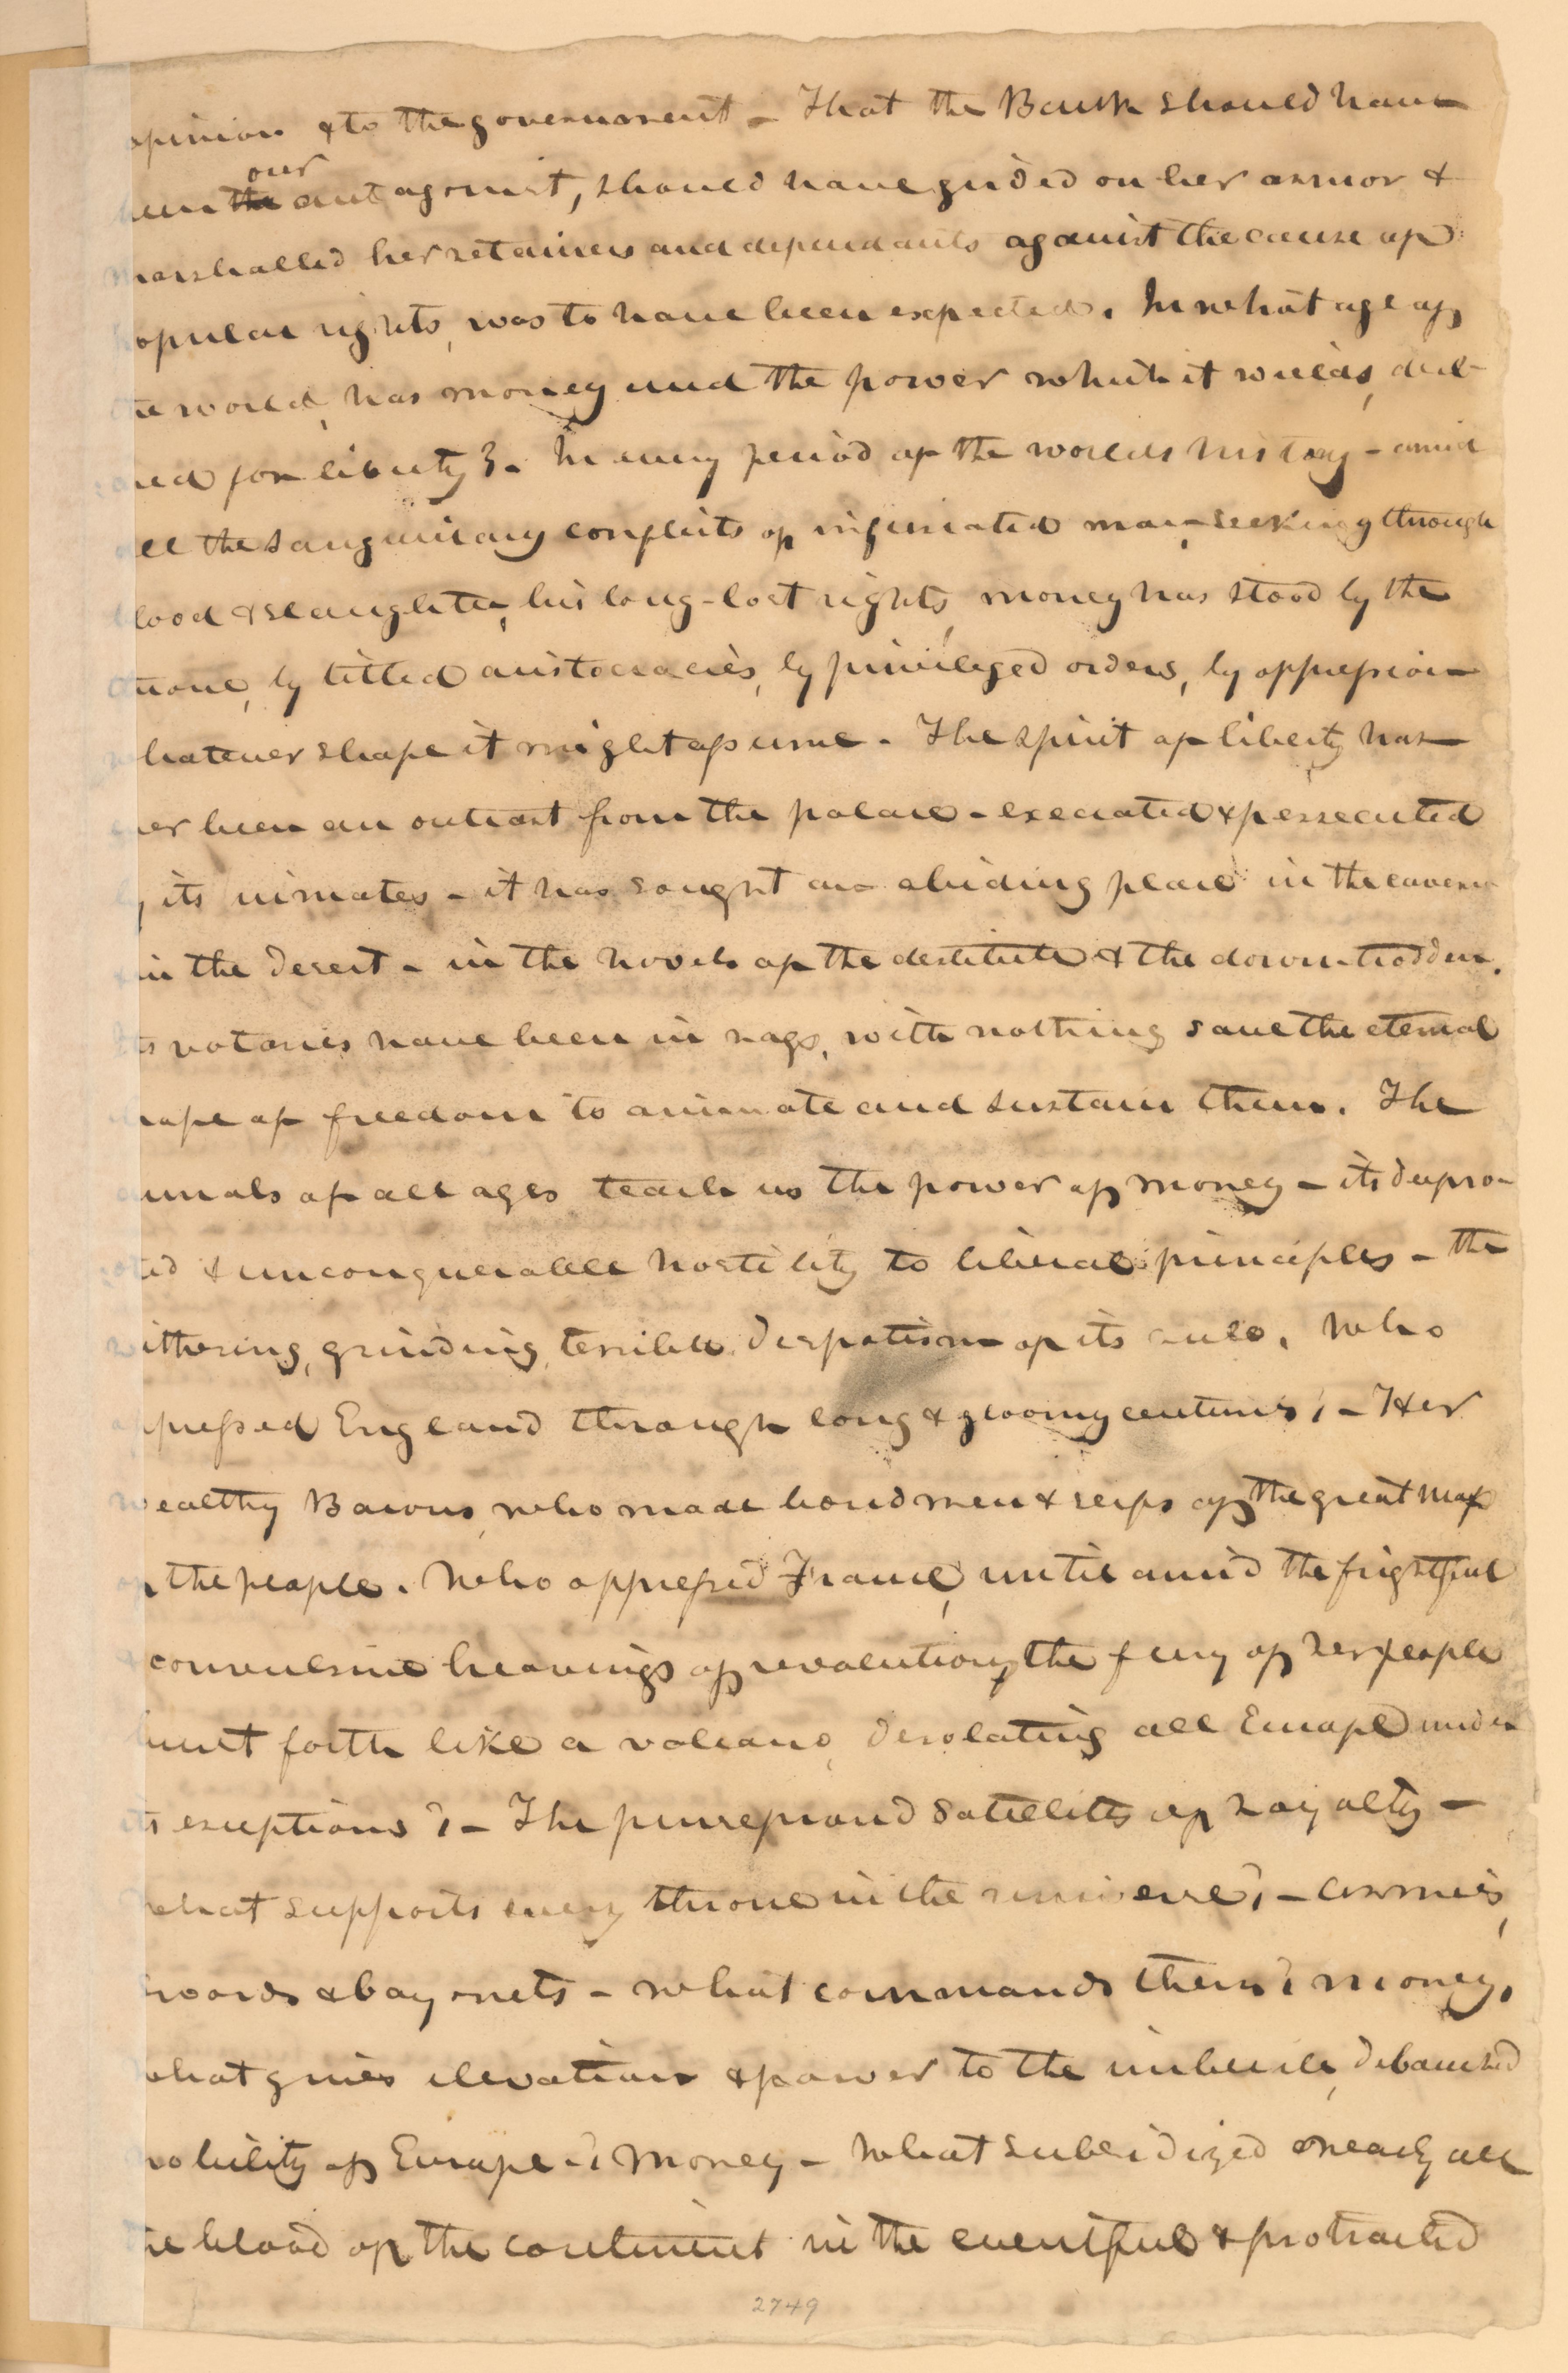 opinion & to the government – That the Bank should have
been the our antagonist, should have girded on her armor &
marshalled her retainers and dependants against the cause of
popular rights, was to have been expected. In what age of
the world, has money and the power which it wields, decl-
ared for liberty? – In every period of the worlds history – amid
all the sanguinary conflicts of infuriated man, seeking through
blood & slaughter, his long-lost rights, money has stood by the
throne, by titled aristocracies, by privileged orders, by oppression
whatever shape it might assume – The spirit of liberty has
ever been an outcast from the palace – execrated & persecuted
by its inmates – it has sought an abiding place in the cavern
in the desert – in the hovels of the destitute & the down-trodden.
Its votaries have been in rags, with nothing save the eternal
hope of freedom to animate and sustain them. The
annals of all ages teach us the power of money – its deepro-
oted & unconquerable hostility to liberal principles – the
withering, grinding, terrible despotism of its rule. Who
oppressed England through long & gloomy centuries? – Her
wealthy Barons, who made bondmen & serfs of the great mass
of the people. Who oppressed France, until amid the frightful
& convulsive heavings of revolution, the fury of her people
burst forth like a volcano, desolating all Europe under
its eruptions? – The purseproud satellites of royalty –
What supports every throne in the universe? – armies,
swords & bayonets – what commands them? money,
what gives elevation & power to the imbecile, debauched
nobility of Europe – ? money – What subsidized nearly all
the blood of the continent in the eventful & protracted
2749